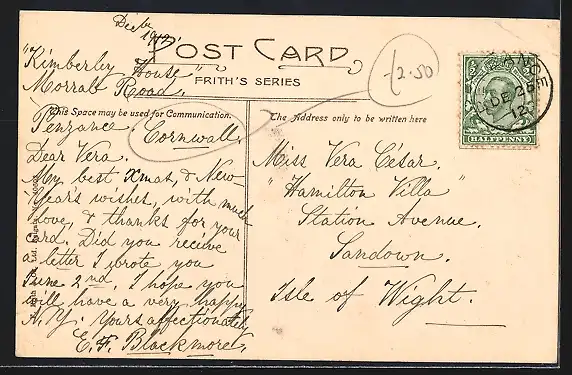 Decbr
1912.
POST CARD
FRITH'S SERIES
£2.50
HALFPENNY
DE 26
12
"Kimberley House"
Morrab Road.
This Space may be used for Communication.
Penzance. Cornwall.
Dear Vera.
My best Xmas, & New-
Year's wishes, with much
love, & thanks for your
card. Did you receive
a letter I wrote you
June 2nd. I hope you
will have a very happy
N.Y. Yours affectionately,
E. F. Blackmore.
The Address only to be written here
Miss Vera César.
"Hamilton Villa"
Station Avenue.
Sandown.
Isle of Wight.